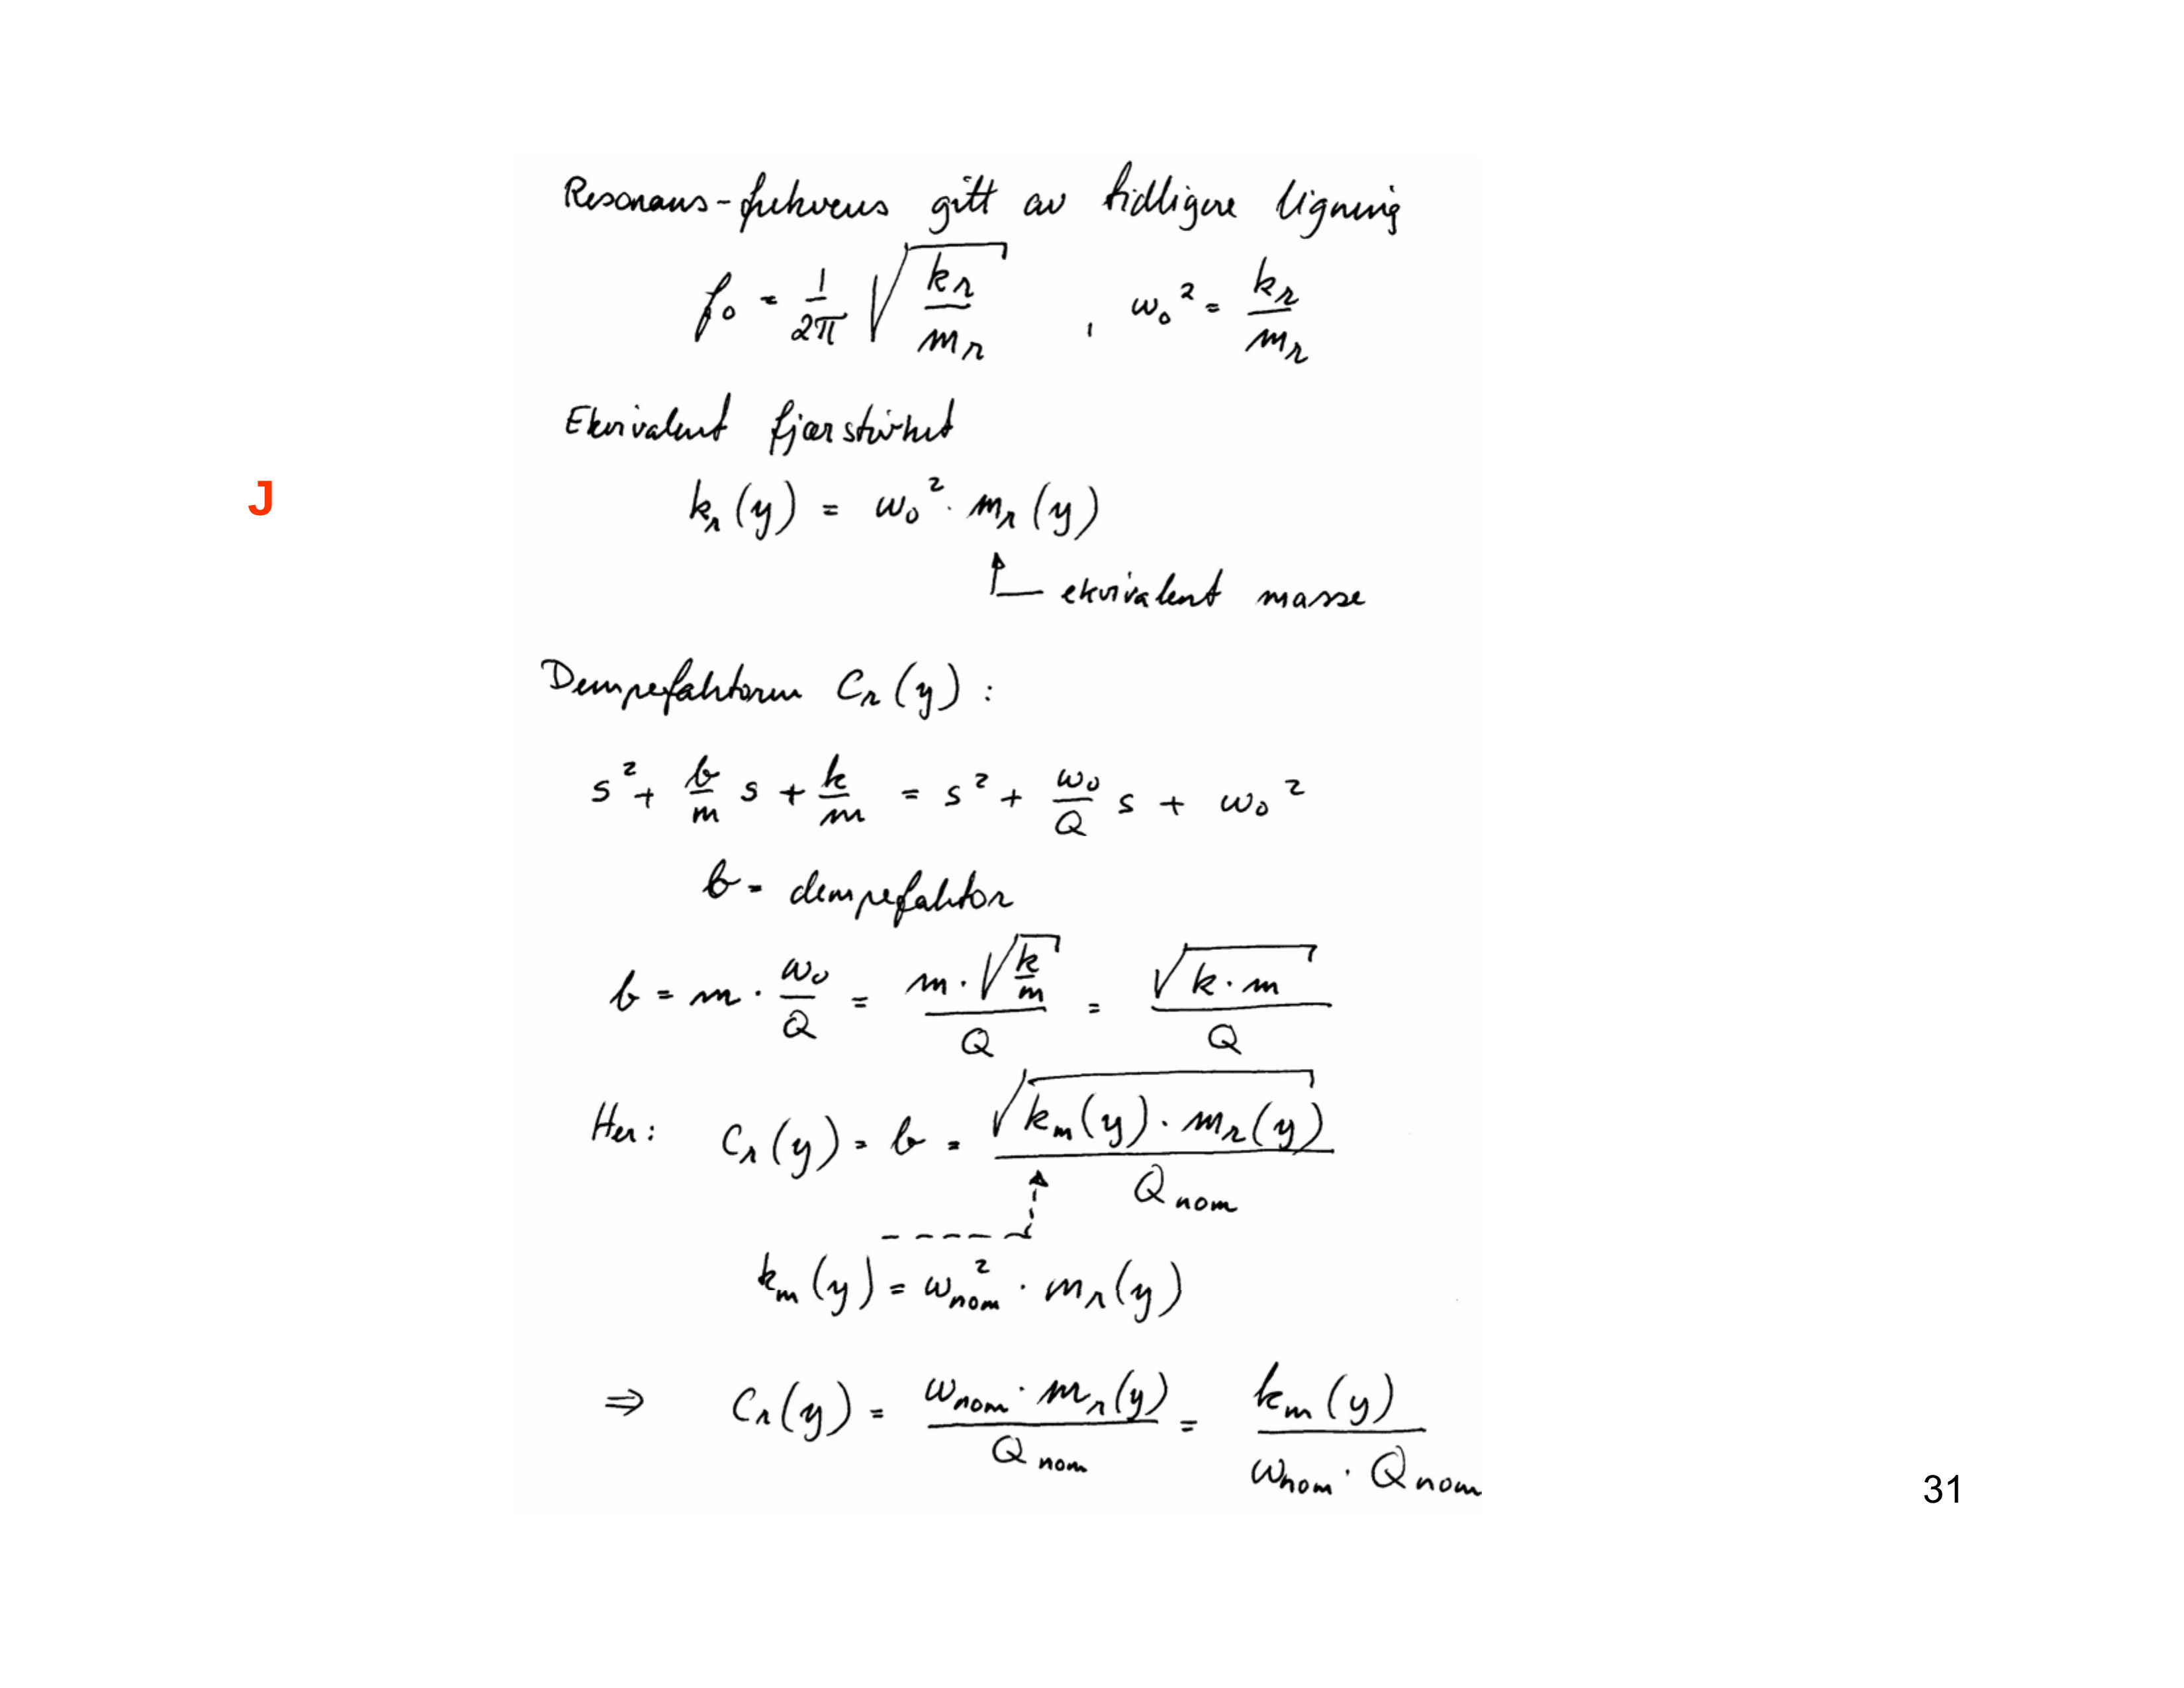 Resonans-frekvens gitt av tidligere ligning
f₀ = 1/2π √(k_r/m_r) , ω₀² = k_r/m_r
Ekvivalent fjærstivhet
J
k_r(y) = ω₀² · m_r(y)
ekvivalent masse
Dempefaktoren C_r(y) :
s² + b/m s + k/m = s² + ω₀/Q s + ω₀²
b = dempefaktor
b = m · ω₀/Q = m·√(k/m)/Q = √(k·m)/Q
Her: C_r(y) = b = √(k_m(y) · m_r(y))/Q_nom
k_m(y) = ω_nom² · m_r(y)
⇒ C_r(y) = ω_nom · m_r(y)/Q_nom = k_m(y)/(ω_nom · Q_nom)
31